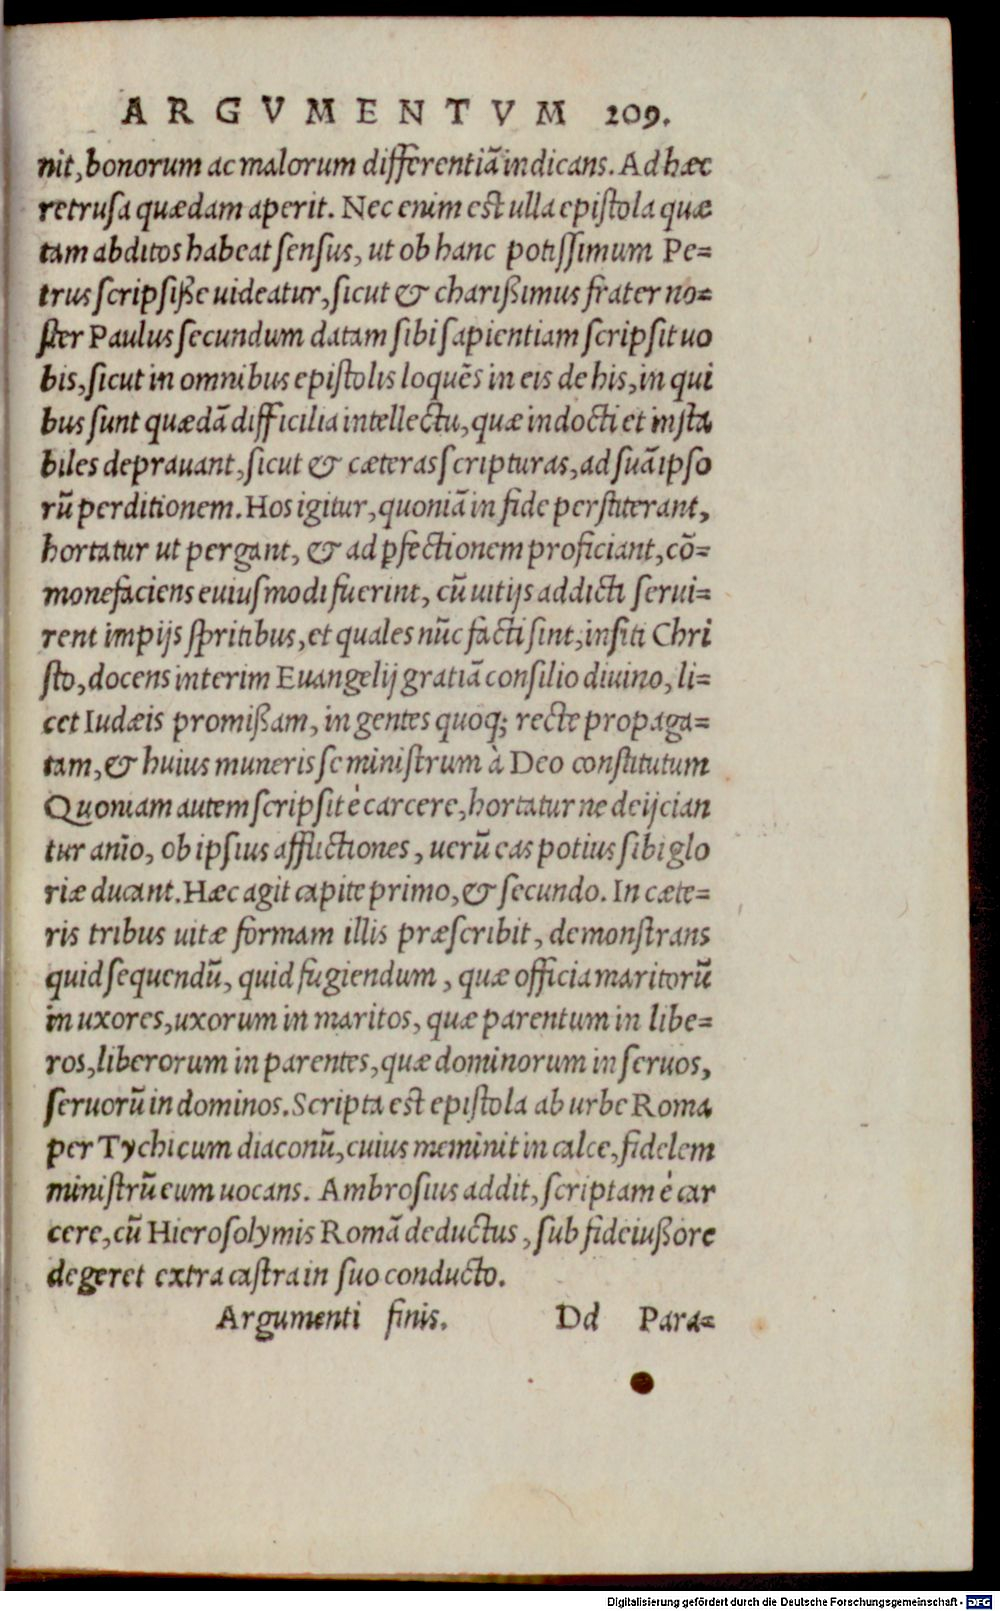 ARGVMENTVM 209.
nit, bonorum ac malorum differentiā indicans. Ad hæc
retrusa quædam aperit. Nec enim est ulla epistola quæ
tam abditos habeat sensus, ut ob hanc potissimum Pe=
trus scripsiße uideatur, sicut & charißimus frater no=
ster Paulus secundum datam sibi sapientiam scripsit uo
bis, sicut in omnibus epistolis loquēs in eis de his, in qui
bus sunt quædā difficilia intellectu, quæ indocti et insta
biles deprauant, sicut & cæteras scripturas, ad suā ipso
rū perditionem. Hos igitur, quoniā in fide perstiterant,
hortatur ut pergant, & ad ꝑfectionem proficiant, cō=
monefaciens euiusmodi fuerint, cū uitijs addicti serui=
rent impijs spritibus, et quales nūc facti sint, insiti Chri
sto, docens interim Euangelij gratiā consilio diuino, li=
cet Iudæis promißam, in gentes quoq; recte propaga=
tam, & huius muneris se ministrum à Deo constitutum
Quoniam autem scripsit è carcere, hortatur ne deijcian
tur anīo, ob ipsius afflictiones, uerū eas potius sibi glo
riæ ducant. Hæc agit capite primo, & secundo. In cæte=
ris tribus uitæ formam illis præscribit, demonstrans
quid sequendū, quid fugiendum, quæ officia maritorū
in uxores, uxorum in maritos, quæ parentum in libe=
ros, liberorum in parentes, quæ dominorum in seruos,
seruorū in dominos. Scripta est epistola ab urbe Roma
per Tychicum diaconū, cuius meminit in calce, fidelem
ministrū eum uocans. Ambrosius addit, scriptam è car
cere, cū Hierosolymis Romā deductus, sub fideiußore
degeret extra castra in suo conducto.
Argumenti finis. Dd Para=
Digitalisierung gefördert durch die Deutsche Forschungsgemeinschaft - DFG